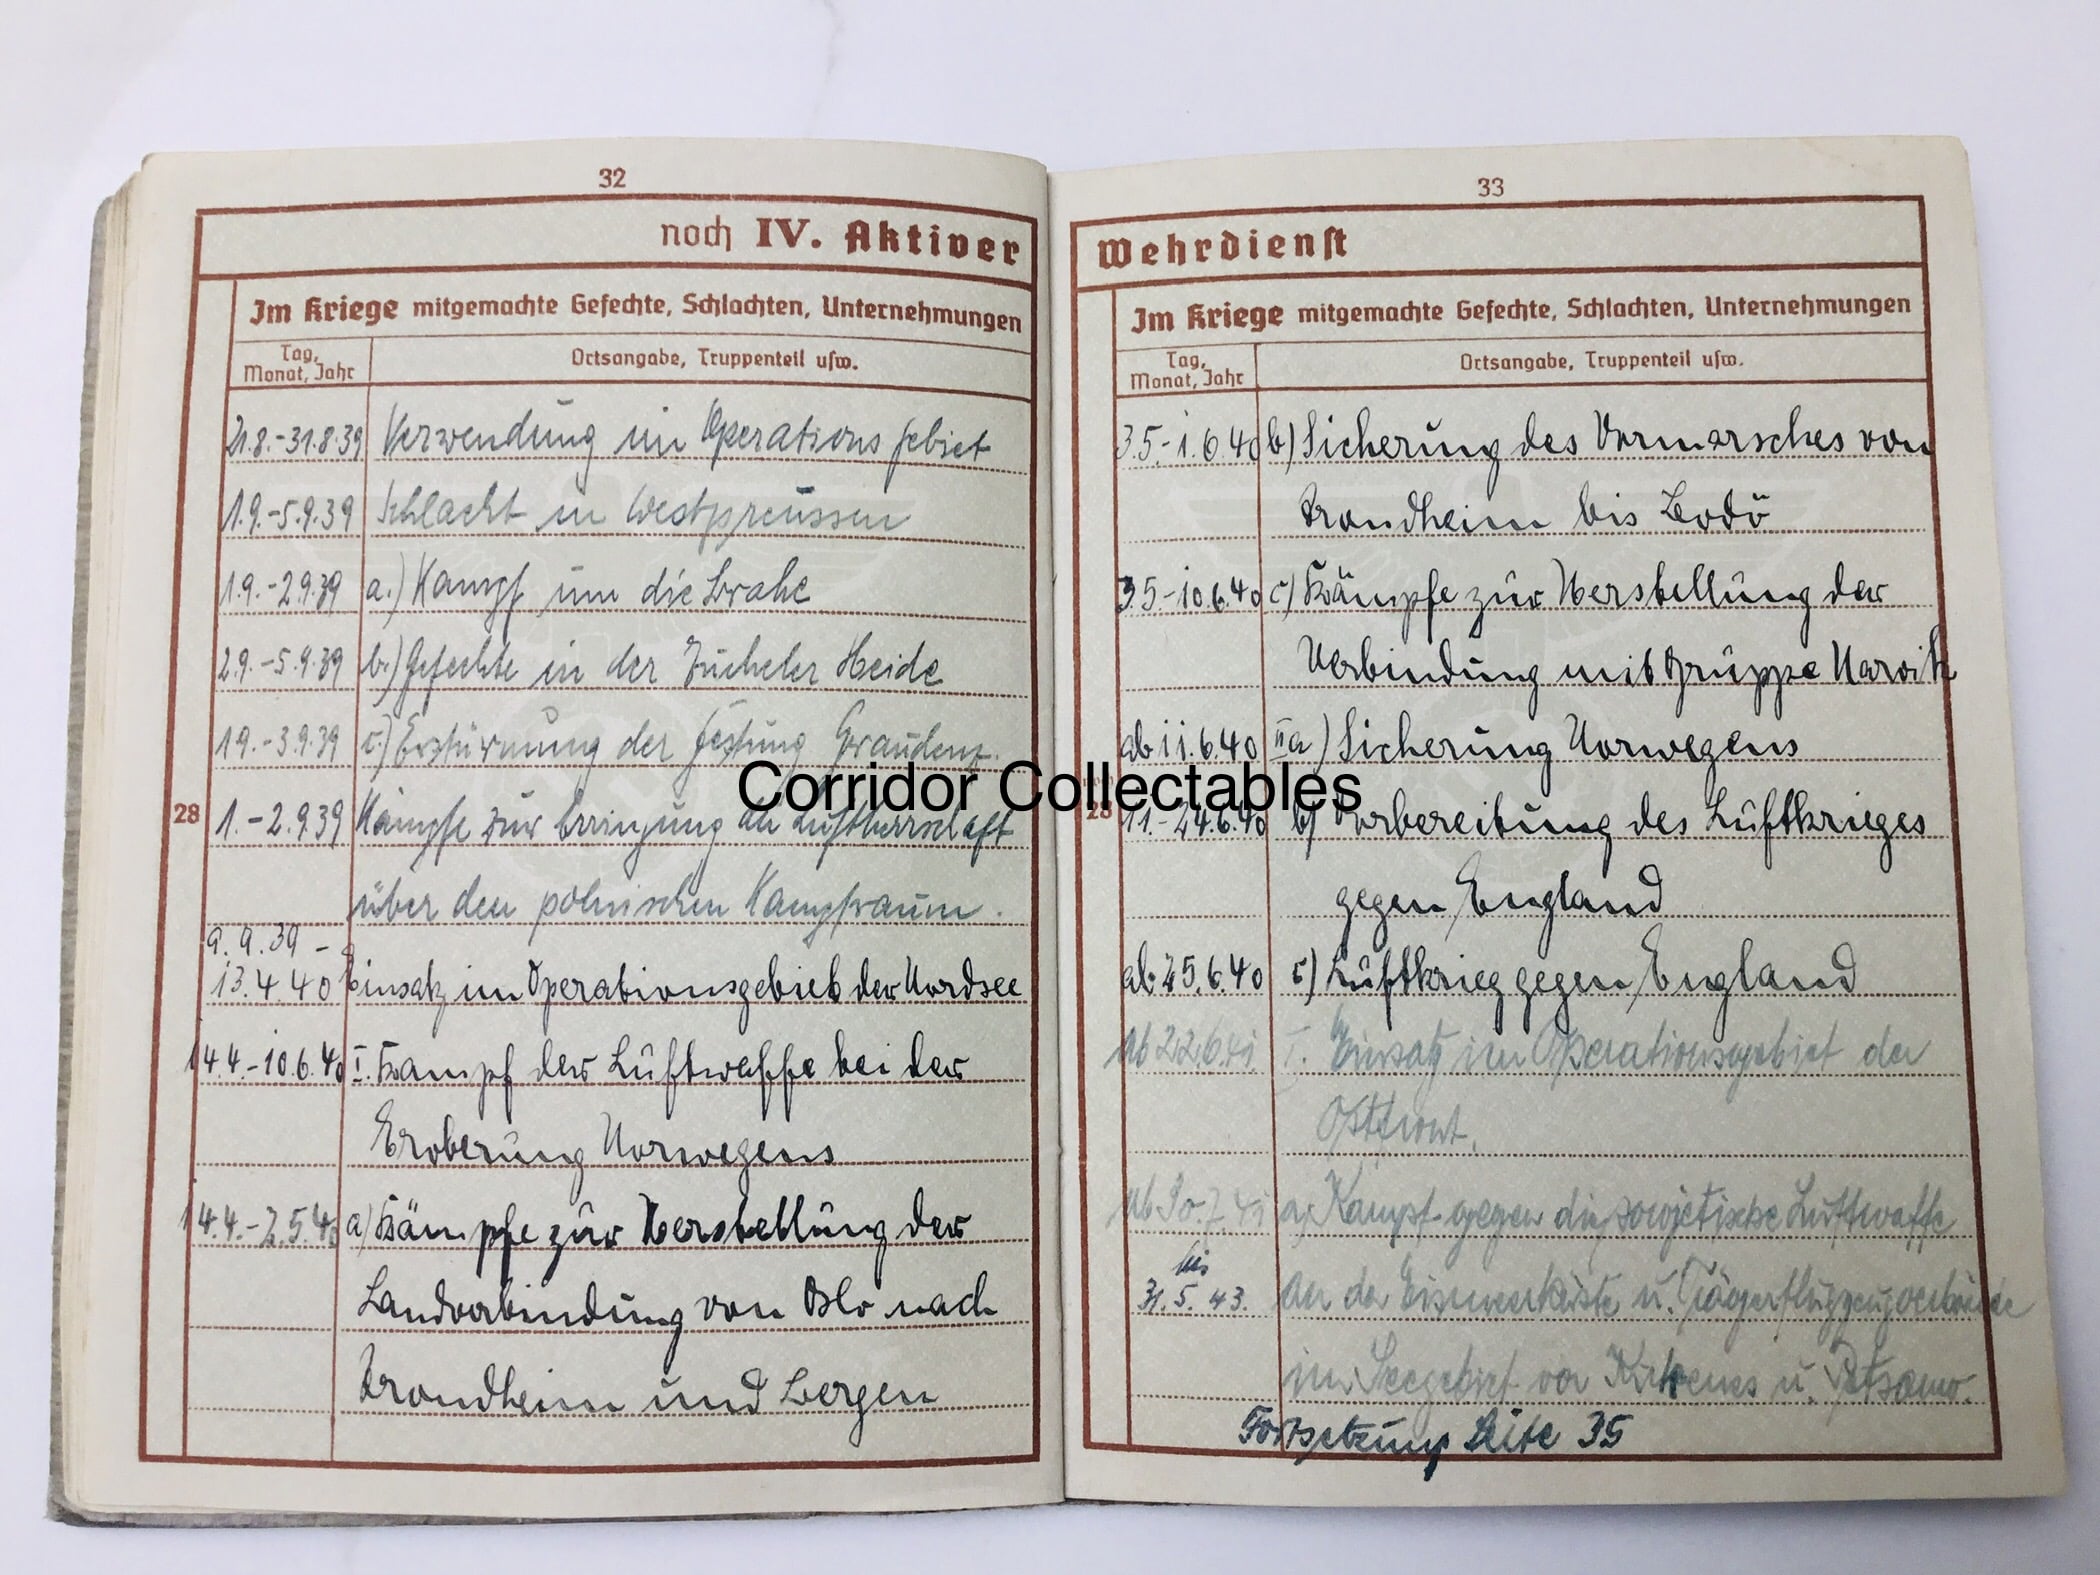 32
noch IV. Aktiver
Im Kriege mitgemachte Gefechte, Schlachten, Unternehmungen
Tag, Monat, Jahr
Ortsangabe, Truppenteil usw.
21.8.-31.8.39 Verwendung im Operationsgebiet
1.9.-5.9.39 Schlacht in Westpreussen
1.9.-2.9.39 a.) Kampf um die Brahe
2.9.-5.9.39 b.) Gefechte in der Tucheler Heide
1.9.-3.9.39 c.) Erstürmung der Festung Graudenz.
28 1.-2.9.39 Kämpfe zur Erringung der Luftherrschaft
über den polnischen Kampfraum.
9.9.39 -
13.4.40 Einsatz im Operationsgebiet der Nordsee
14.4.-10.6.40 I. Kampf der Luftwaffe bei der
Eroberung Norwegens
14.4.-2.5.40 a) Kämpfe zür Herstellüng der
Landverbindung von Oslo nach
Trondheim und Bergen
33
Wehrdienst
Im Kriege mitgemachte Gefechte, Schlachten, Unternehmungen
Tag, Monat, Jahr
Ortsangabe, Truppenteil usw.
3.5.-1.6.40 b) Sicherung des Vormarsches von
Trondheim bis Bodö
3.5.-10.6.40 c) Kämpfe zür Herstellüng der
Verbindung mit Grüppe Narvik
ab 11.6.40 IIa) Sicherung Norwegens
28 11.-24.6.40 b) Vorbereitung des Lüftkrieges
gegen England
ab 25.6.40 c) Lüftkrieg gegen England
ab 22.6.41 I. Einsatz im Operationsgebiet der
Ostfront.
ab 30.7.41 a) Kampf gegen die sowjetische Luftwaffe
bis
31.5.43. an der Eismeerküste u. Jägerflugzeugverbände
im Seegebiet vor Kirkenes u. Petsamo.
Fortsetzung Seite 35
Corridor Collectables